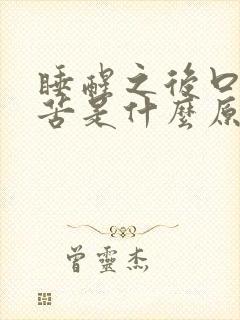 睡醒之後口
苦是什麼原
曾靈杰